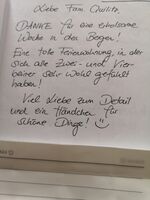 Liebe Fam. Quilitz,
DANKE für eine erholsame
Woche in den Bergen!
Eine tolle Ferienwohnung, in der
sich alle Zwei- und Vier-
beiner sehr wohl gefühlt
haben!
Viel Liebe zum Detail
und ein Händchen für
schöne Dinge! ☺